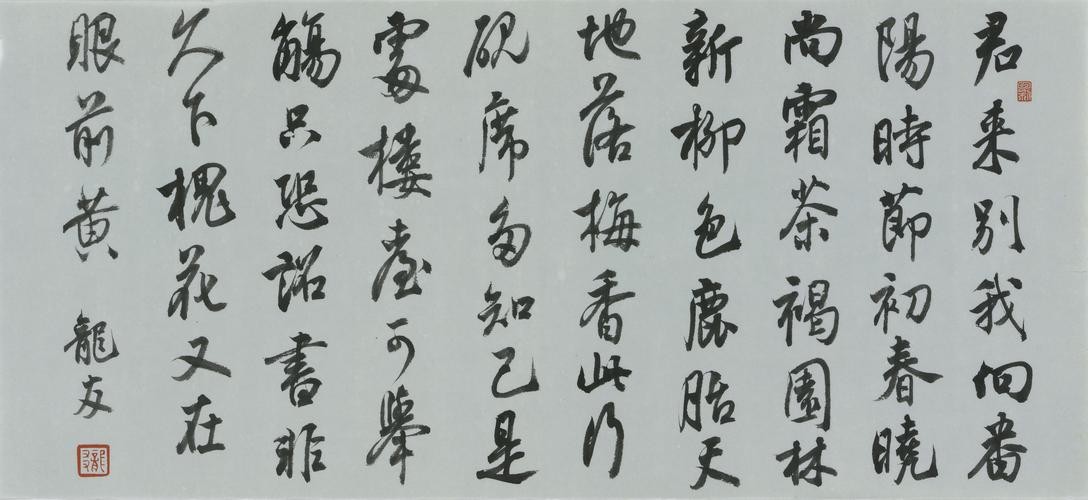 君来别我向番
陽時節初春曉
尚霜茶褐園林
新柳色鹿胎天
地落梅香此行
硯席多知己是
處樓臺可舉
觴只恐詔書非
久下槐花又在
眼前黄
龍友
龍友